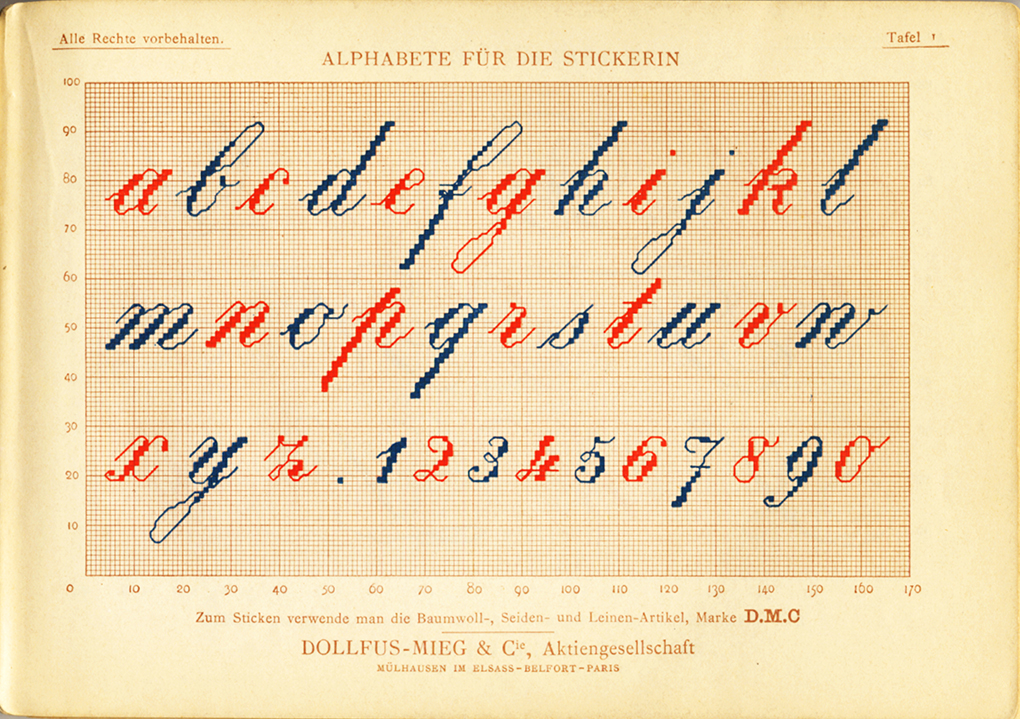 Alle Rechte vorbehalten. Tafel 1
ALPHABETE FÜR DIE STICKERIN
100
90
a b c d e f g h i j k l
80
70
60
m n o p q r s t u v w
50
40
30
x y z . 1 2 3 4 5 6 7 8 9 0
20
10
0 10 20 30 40 50 60 70 80 90 100 110 120 130 140 150 160 170
Zum Sticken verwende man die Baumwoll-, Seiden- und Leinen-Artikel, Marke D.M.C
DOLLFUS-MIEG & Cie, Aktiengesellschaft
MÜLHAUSEN IM ELSASS-BELFORT-PARIS